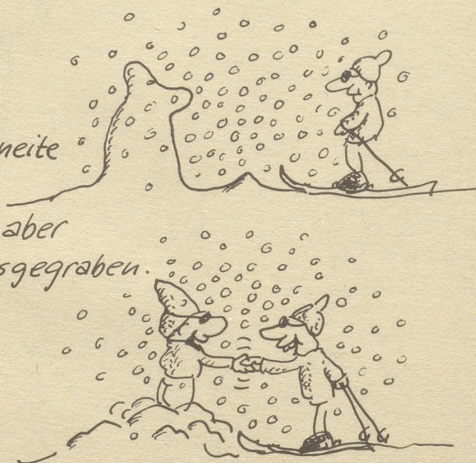 neite
aber
sgegraben.